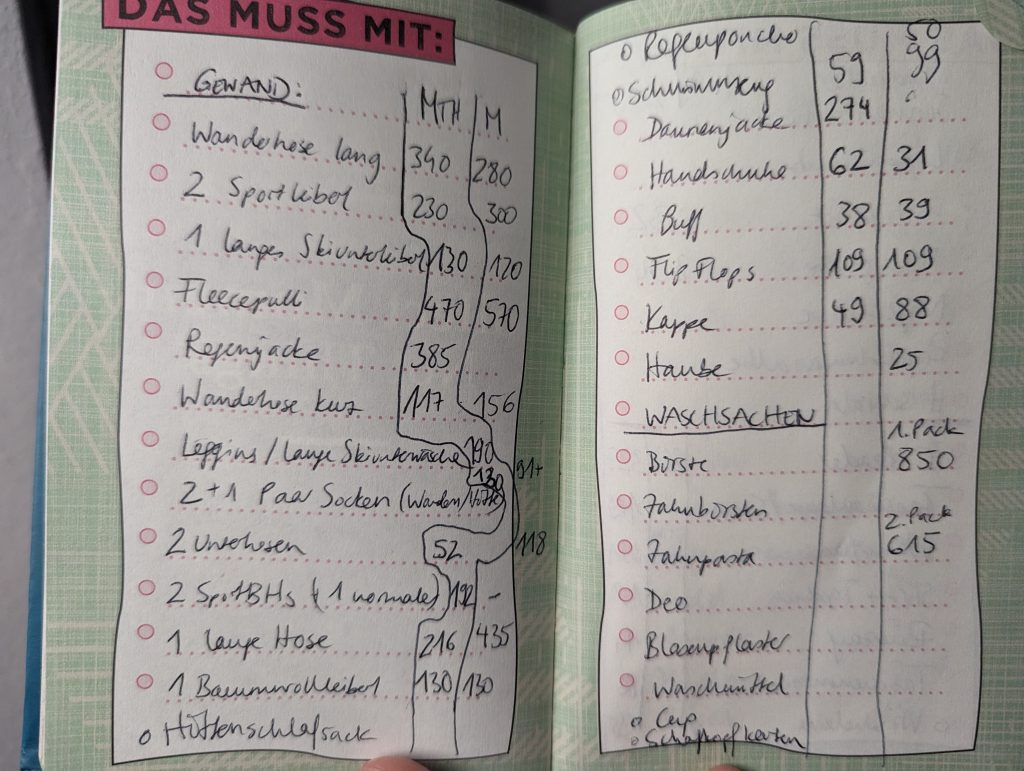 DAS MUSS MIT:
GEWAND: MTH M
Wanderhose lang 340 280
2 Sportleibal 230 300
1 langes Skiunterleiberl 130 120
Fleecepulli 470 570
Regenjacke 385
Wanderhose kurz 117 156
Leggins / lange Skiunterwäsche 190
130 91+
2+1 Paar Socken (Wandern/Hütte)
2 Unterhosen 52 118
2 SportBHs (1 normaler) 192 -
1 lange Hose 216 435
1 Baumwollleiberl 130 130
Hüttenschlafsack
Regenponcho 50
59 99
Schwimmzeug
Daunenjacke 274
Handschuhe 62 31
Buff 38 39
Flip Flops 109 109
Kappe 49 88
Haube 25
WASCHSACHEN
1. Pack
Bürste 850
Zahnbürsten
2. Pack
Zahnpasta 615
Deo
Blasenpflaster
Waschmittel
Cup
Schafkopfkarten